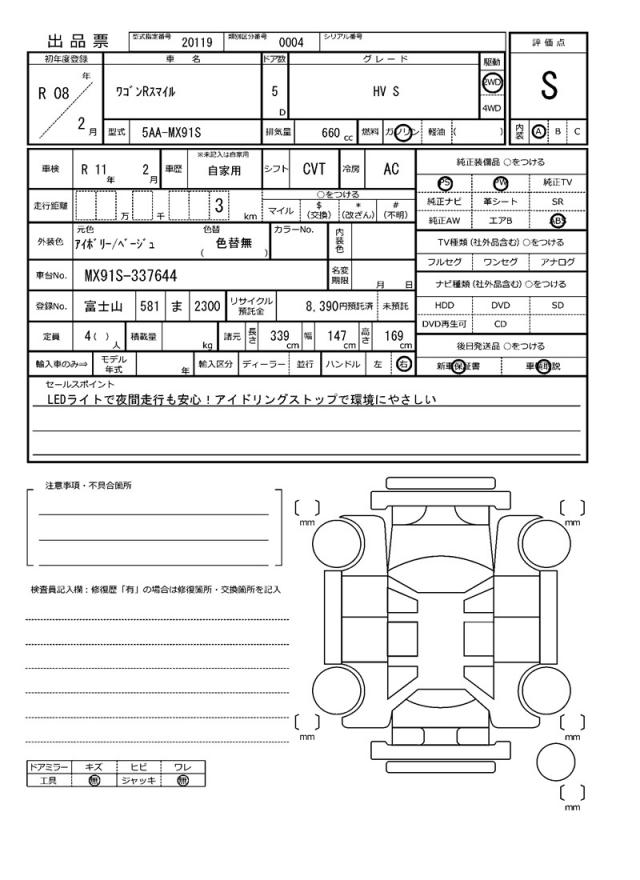 出品票 型式指定番号 20119 類別区分番号 0004 シリアル番号
評価点
S
内装 A B C
初年度登録 車名 ドア数 グレード 駆動
R 08 年 2 月 ワゴンRスマイル 5 D HV S 2WD 4WD
型式 5AA-MX91S 排気量 660 cc 燃料 ガソリン 軽油 ( )
車検 R 11 年 2 月 車歴 ※未記入は自家用 自家用 シフト CVT 冷房 AC
走行距離 万 千 3 km ○をつける
マイル $ (交換) * (改ざん) # (不明)
外装色 元色 アイボリー/ベージュ 色替 ( 色替無 ) カラーNo. 内装色
車台No. MX91S-337644 名変期限 月 日
登録No. 富士山 581 ま 2300 リサイクル預託金 8,390円預託済 未預託
定員 4( ) 人 積載量 kg 諸元 長さ 339 cm 幅 147 cm 高さ 169 cm
輸入車のみ⇒ モデル年式 年 輸入区分 ディーラー 並行 ハンドル 左 右
純正装備品 ○をつける
PS PW 純正TV
純正ナビ 革シート SR
純正AW エアB ABS
TV種類 (社外品含む) ○をつける
フルセグ ワンセグ アナログ
ナビ種類 (社外品含む) ○をつける
HDD DVD SD
DVD再生可 CD
後日発送品 ○をつける
新車保証書 車輌取説
セールスポイント
LEDライトで夜間走行も安心！アイドリングストップで環境にやさしい
注意事項・不具合箇所
検査員記入欄：修復歴「有」の場合は修復箇所・交換箇所を記入
ドアミラー キズ ヒビ ワレ
工具 無 ジャッキ 無
mm
mm
mm
mm
mm